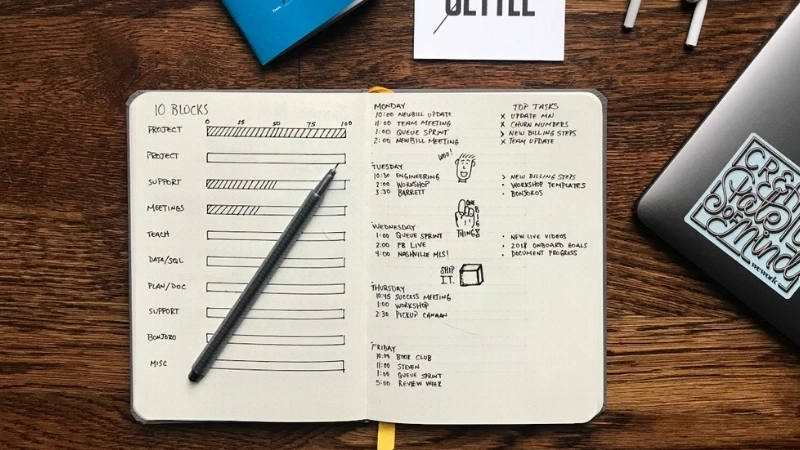 10 BLOCKS
0 25 50 75 100
PROJECT
PROJECT
SUPPORT
MEETINGS
TEACH
DATA/SQL
PLAN/DOC
SUPPORT
BONJORO
MISC
MONDAY
10:00 NEWBILL UPDATE
11:00 TEAM MEETING
1:00 QUEUE SPRINT
2:00 NEWBILL MEETING
TOP TASKS
x UPDATE MN
x CHURN NUMBERS
> NEW BILLING STEPS
x TEAM UPDATE
WOO!
TUESDAY
10:30 ENGINEERING
2:00 WORKSHOP
3:30 BARRETT
> NEW BILLING STEPS
• WORKSHOP TEMPLATES
• BONJOROS
BIG
THINGS
WEDNESDAY
1:00 QUEUE SPRINT
2:00 PB LIVE
4:00 NASHVILLE MLS!
• NEW LIVE VIDEOS
• 2018 ONBOARD GOALS
• DOCUMENT PROGRESS
SHIP
IT.
THURSDAY
10:45 SUCCESS MEETING
1:00 WORKSHOP
2:30 PICKUP CANAAN
FRIDAY
10:00 BOOK CLUB
11:00 STEVEN
1:00 QUEUE SPRINT
5:00 REVIEW WEEK
State
OF Mind
wework